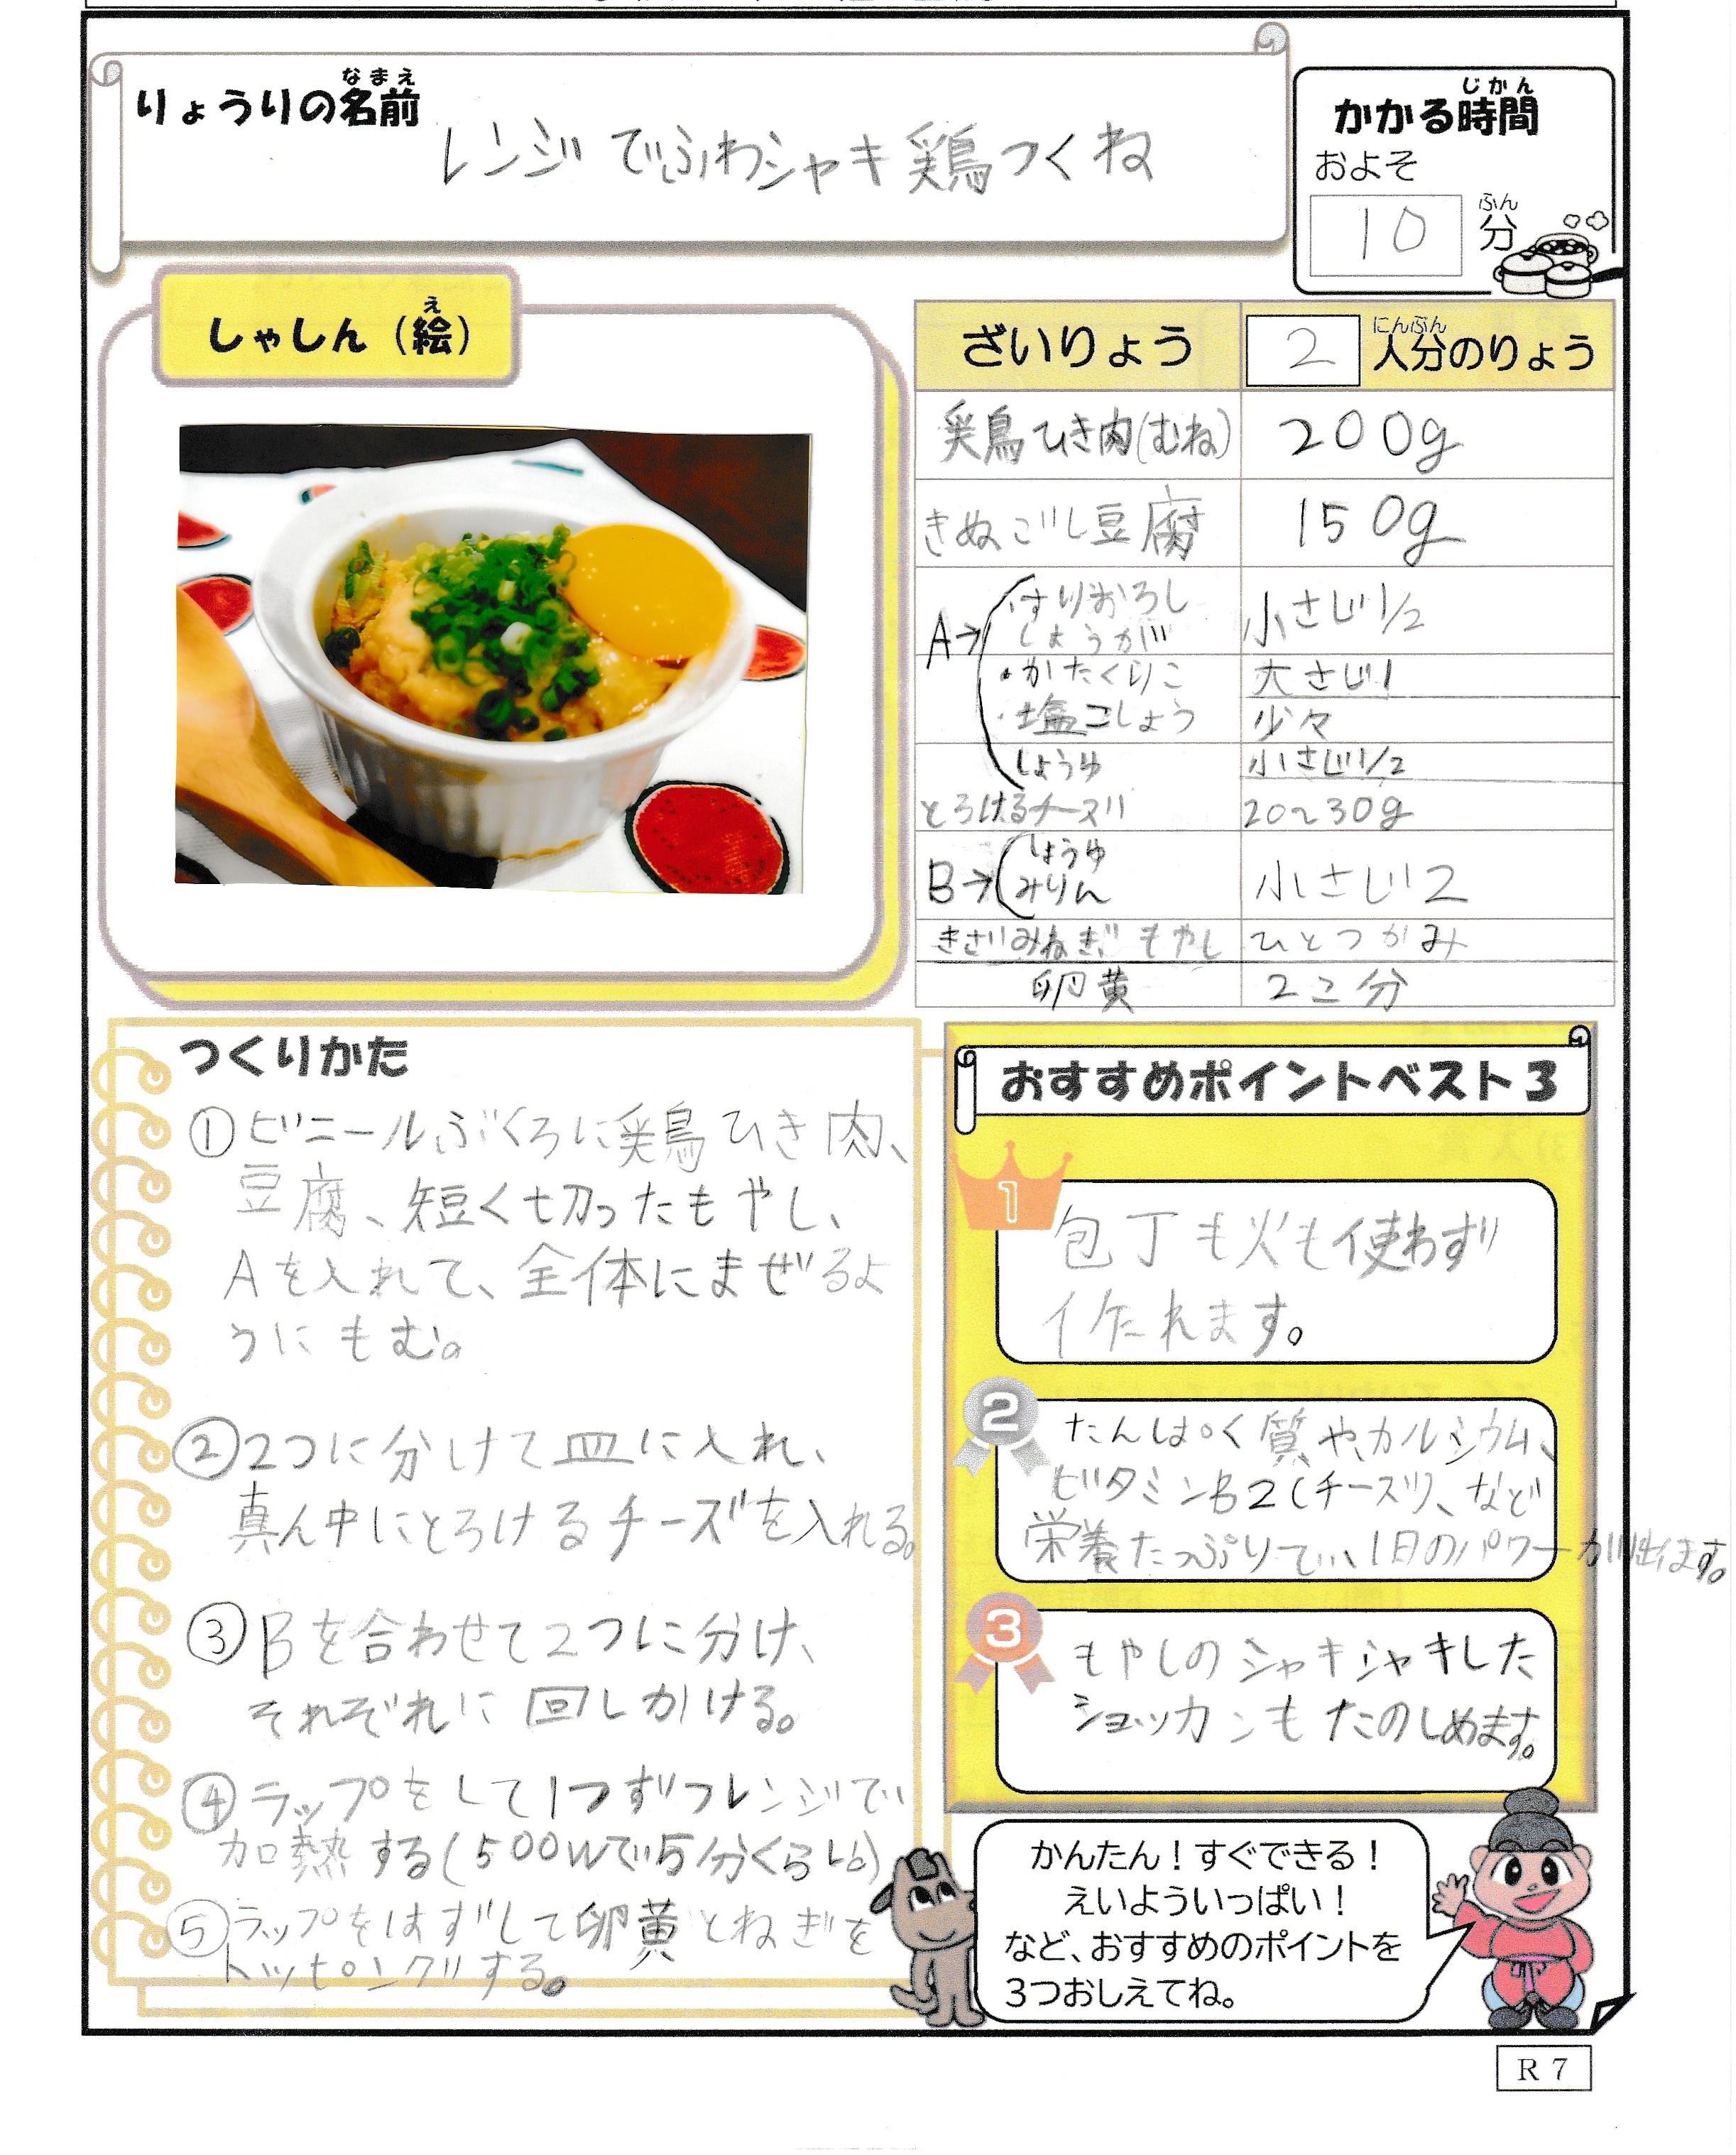 りょうりの名前
なまえ
レンジでふわシャキ鶏つくね
かかる時間
じかん
およそ
10分
ふん
しゃしん（絵）
え
ざいりょう 2人分のりょう
にんぶん
鶏ひき肉(むね) 200g
きぬごし豆腐 150g
A→
・すりおろししょうが 小さじ1/2
・かたくりこ 大さじ1
・塩こしょう 少々
しょうゆ 小さじ1/2
とろけるチーズ 20~30g
B→
しょうゆ
みりん 小さじ2
きざみねぎ、もやし ひとつかみ
卵黄 2こ分
つくりかた
①ビニールぶくろに鶏ひき肉、
豆腐、短く切ったもやし、
Aを入れて、全体にまぜるよ
うにもむ。
②2つに分けて皿に入れ、
真ん中にとろけるチーズを入れる。
③Bを合わせて2つに分け、
それぞれに回しかける。
④ラップをして1つずつレンジで
加熱する(500Wで5分くらい)
⑤ラップをはずして卵黄とねぎを
トッピングする。
おすすめポイントベスト3
1
包丁も火も使わず
作れます。
2
たんぱく質や、カルシウム、
ビタミンB2(チーズ)、など
栄養たっぷりで、1日のパワーが出ます。
3
もやしのシャキシャキした
ショッカンもたのしめます。
かんたん！すぐできる！
えいよういっぱい！
など、おすすめのポイントを
3つおしえてね。
R7